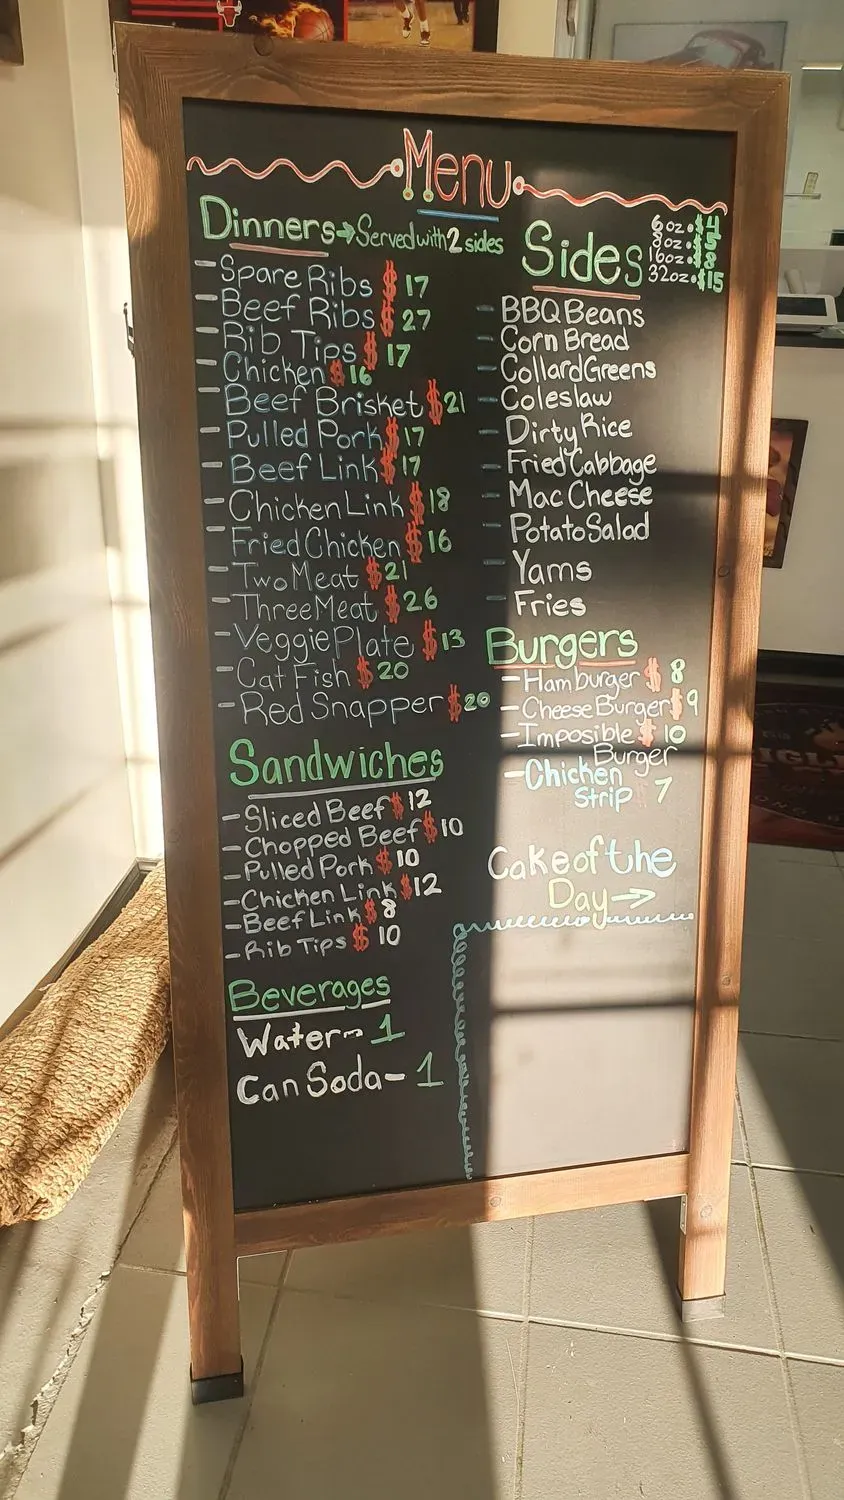 Menu
Dinners→Served with 2 sides
- Spare Ribs $17
- Beef Ribs $27
- Rib Tips $17
- Chicken $16
- Beef Brisket $21
- Pulled Pork $17
- Beef Link $17
- Chicken Link $18
- Fried Chicken $16
- Two Meat $21
- Three Meat $26
- Veggie Plate $13
- Cat Fish $20
- Red Snapper $20
Sandwiches
- Sliced Beef $12
- Chopped Beef $10
- Pulled Pork $10
- Chicken Link $12
- Beef Link $8
- Rib Tips $10
Beverages
Water- 1
Can Soda- 1
Sides
6oz•$4
8oz•$5
16oz•$8
32oz•$15
- BBQ Beans
- Corn Bread
- Collard Greens
- Coleslaw
- Dirty Rice
- Fried Cabbage
- Mac Cheese
- Potato Salad
- Yams
- Fries
Burgers
- Hamburger $8
- Cheese Burger $9
- Imposible $10
Burger
- Chicken
Strip 7
Cake of the
Day→